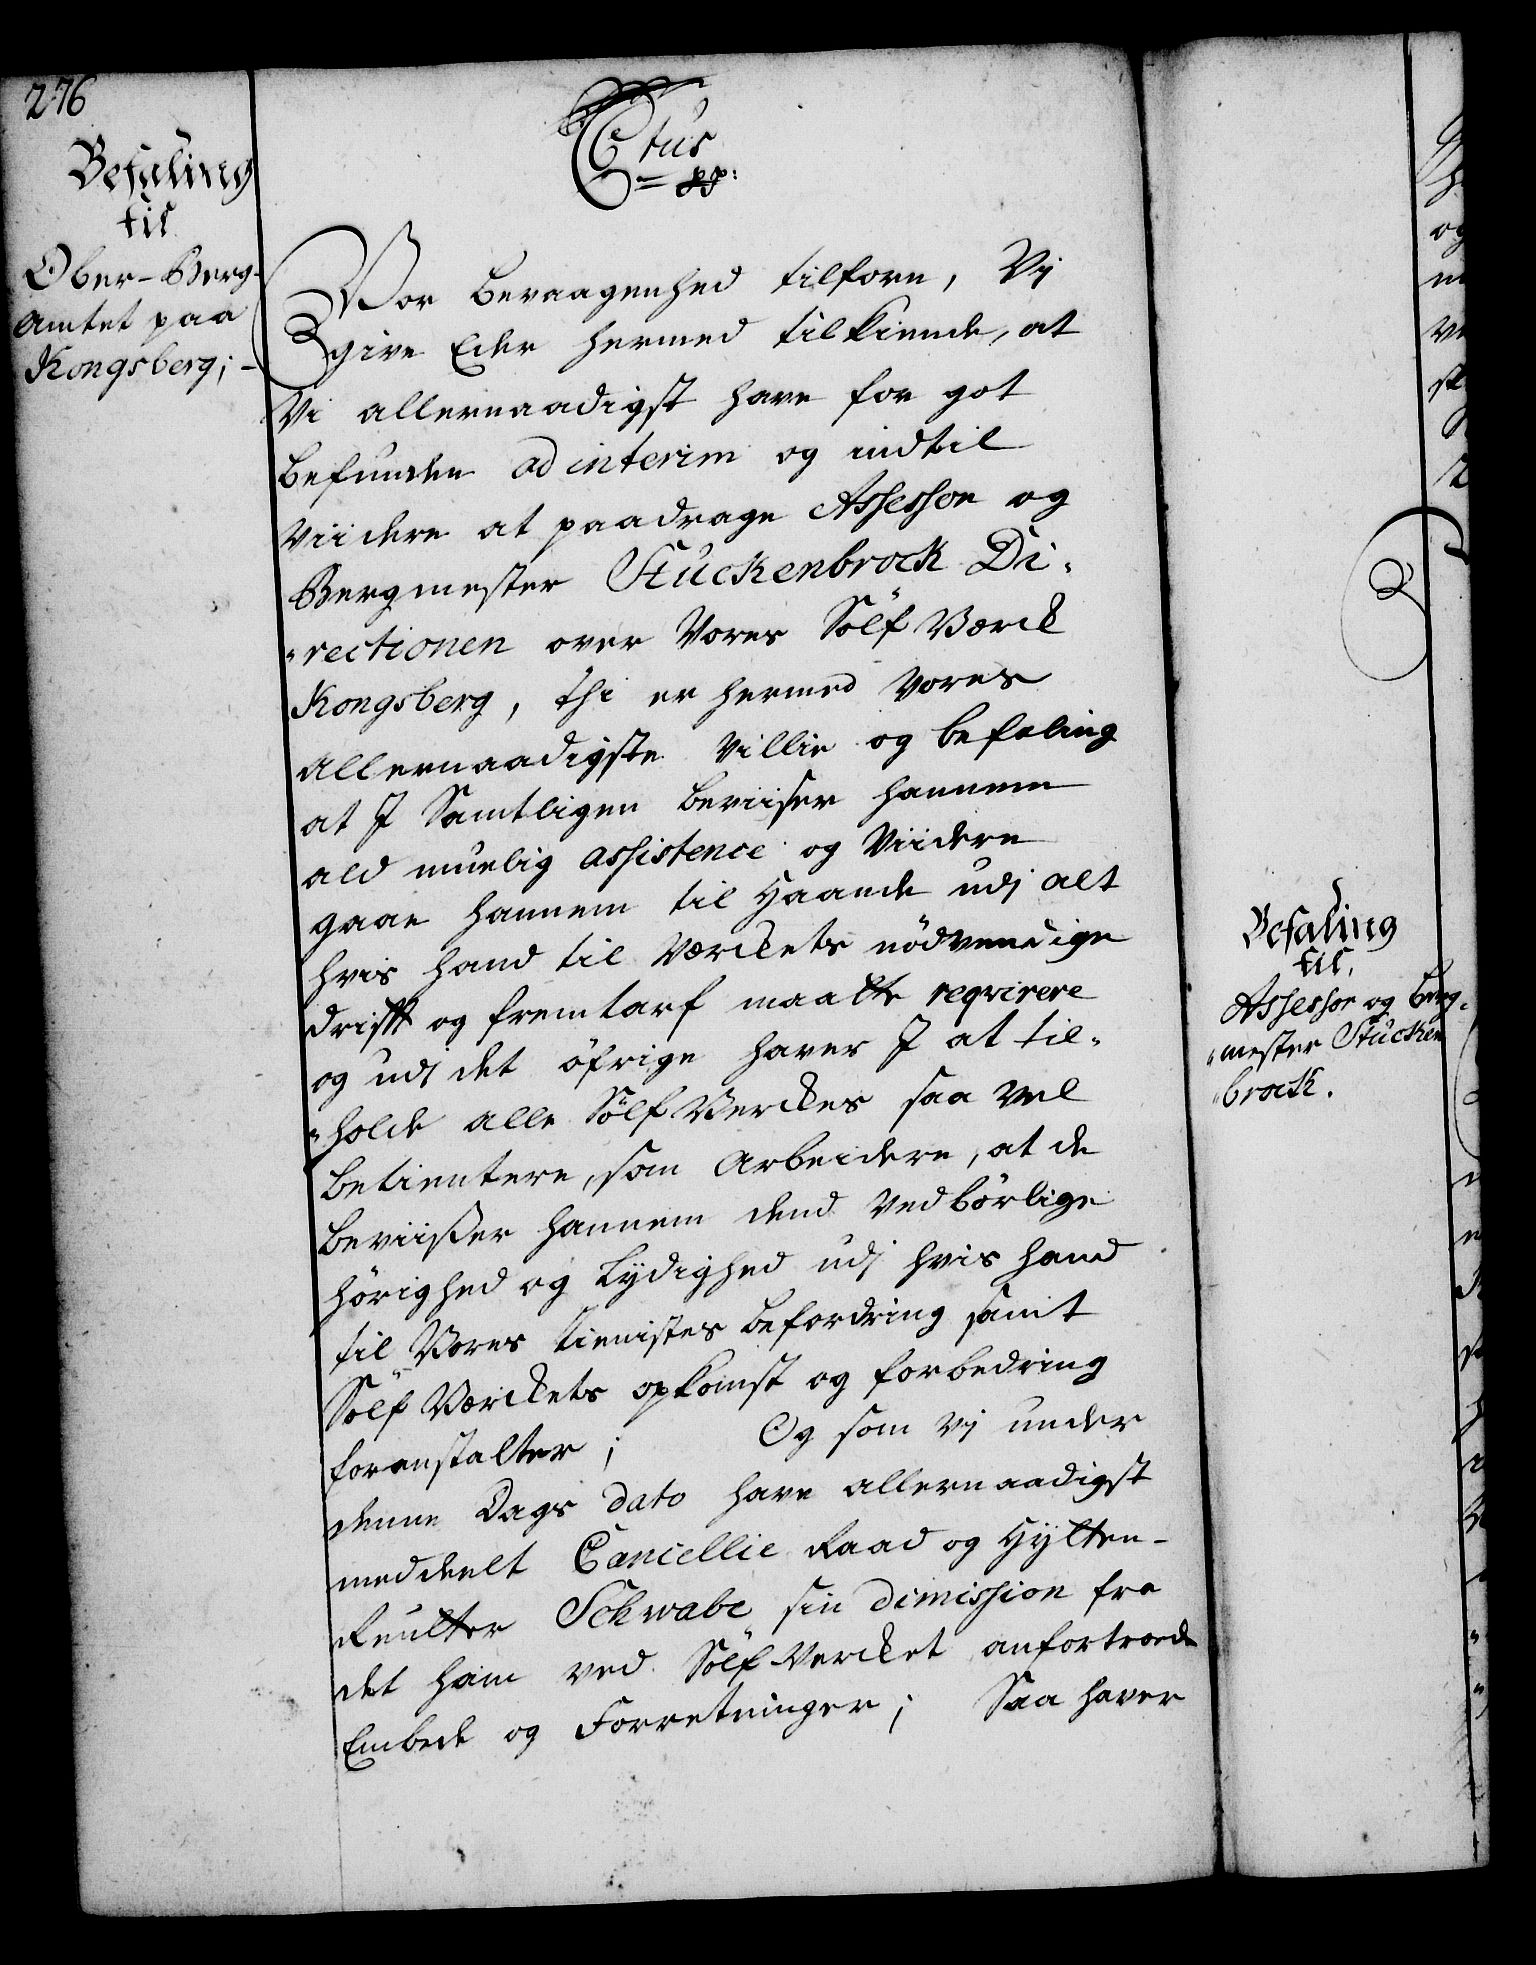 276
Befaling
til
Ober-Berg-
Amtet paa
Kongsberg; -
Ctus
pp:
Vor bevaagenhed tilforn, Vj
give Eder hermed tilkiende, at
Vi allernaadigst have for got
befunden ad interim og indtil
Viidere at paadrage Assessor og
Bergmester Stuckenbrock Di„
„rectionen over Vores Sölf Værck
Kongsberg, thi er hermed Vores
allernaadigste Villie og befaling
at J Samtligen beviiser hannem
ald muelig assistence og Viidere
gaae hannem til Haande udj alt
hvis hand til Værckets nödvendige
drifft og fremtarf maatte reqvirere
og udj det öfrige haver J at til„
„holde alle Sölf Verckes saa vel
betientere, som Arbeidere, at de
beviißer hannem dend Vedbörlige
hörighed og Lydighed udj hvis hand
til Vores tienistes befordring samt
Sölf Værckets opkomst og forbedring
foranstalter; Og som vj under
denne Dags dato have allernaadigst
meddeelt Cancellie Raad og Hytten-
Reuter Schwabe sin dimission fra
det ham ved Sölf Vercket anfortroede
Embede og Forretninger; Saa haver
Befaling
til.
Assessor og Berg„
„mester Stucken
„brock.